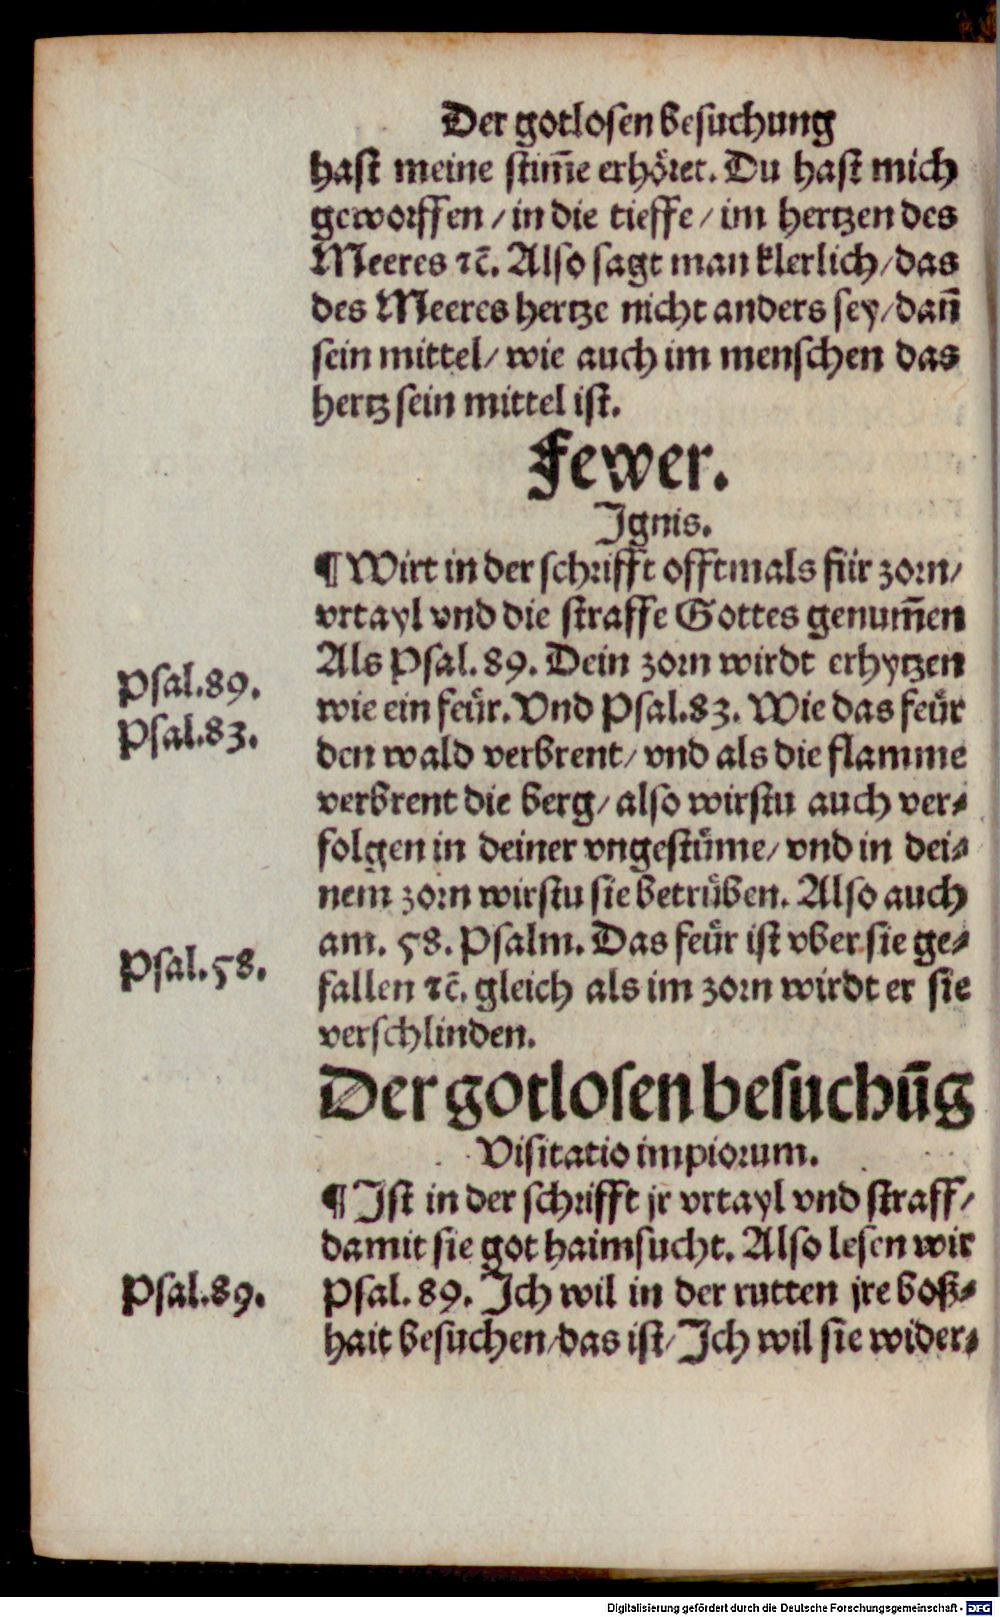 Der gotlosen besuchung
hast meine stim̃e erhöret. Du hast mich
geworffen / in die tieffe / im hertzen des
Meeres ⁊c̃. Also sagt man klerlich / das
des Meeres hertze nicht anders sey / dañ
sein mittel / wie auch im menschen das
hertz sein mittel ist.
Fewer.
Ignis.
¶ Wirt in der schrifft offtmals für zorn /
vrtayl vnd die straffe Gottes genum̃en
Als Psal. 89. Dein zorn wirdt erhytzen
Psal.89.
wie ein feür. Vnd Psal.83. Wie das feür
Psal.83.
den wald verbrent / vnd als die flamme
verbrent die berg / also wirstu auch ver⸗
folgen in deiner vngestüme / vnd in dei⸗
nem zorn wirstu sie betrüben. Also auch
am. 58. Psalm. Das feür ist vber sie ge⸗
Psal.58.
fallen ⁊c̃. gleich als im zorn wirdt er sie
verschlinden.
Der gotlosen besuchũg
Visitatio impiorum.
¶ Ist in der schrifft jr vrtayl vnd straff /
damit sie got haimsucht. Also lesen wir
Psal. 89. Ich wil in der rutten jre boß⸗
Psal.89.
hait besuchen / das ist / Ich wil sie wider⸗
Digitalisierung gefördert durch die Deutsche Forschungsgemeinschaft - DFG